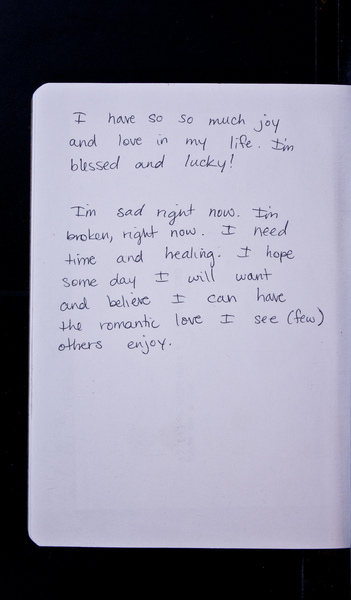 I have so so much joy
and love in my life. I'm
blessed and lucky!
I'm sad right now. I'm
broken, right now. I need
time and healing. I hope
some day I will want
and believe I can have
the romantic love I see (few)
others enjoy.